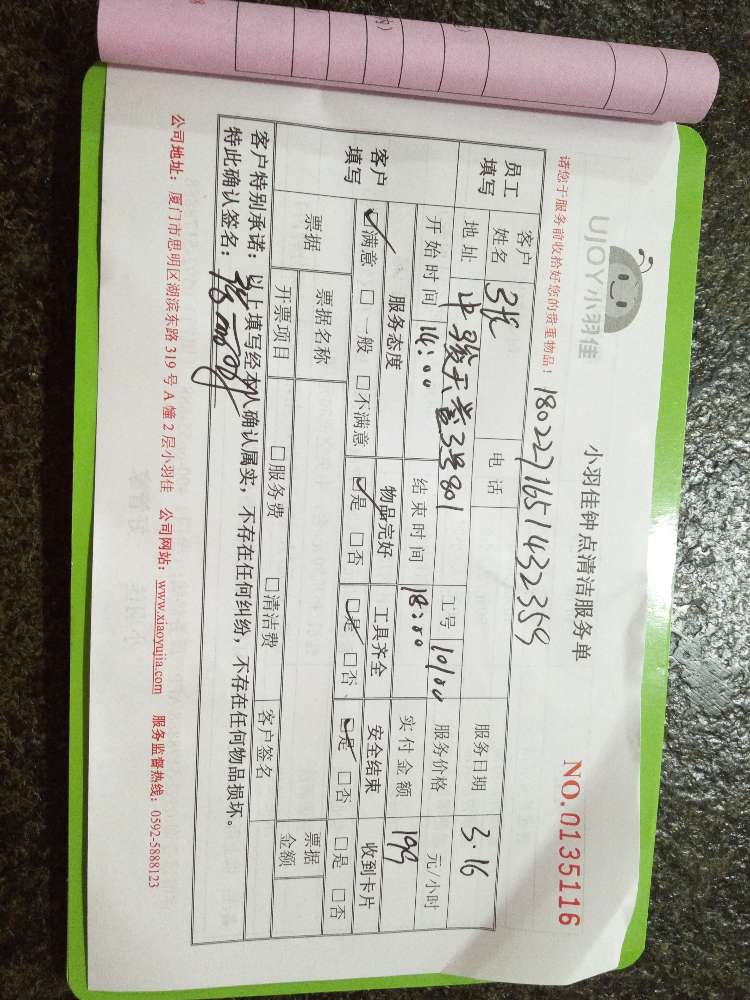 UJOY小羽佳
小羽佳钟点清洁服务单
NO.0135116
请您于服务前收拾好您的贵重物品!
1802271651432359
员工填写 客户姓名 张 电话 服务日期 3.16
地址 中骏天誉3号801 工号 10100 服务价格 元/小时
开始时间 14:00 结束时间 18:00 实付金额 199
客户填写 服务态度 物品完好 工具齐全 安全结束 收到卡片
☑满意 □一般 □不满意 ☑是 □否 ☑是 □否 ☑是 □否 □是 □否
票据 票据名称 票据金额
开票项目 □服务费 □清洁费 客户签名
客户特别承诺:以上填写经本人确认属实,不存在任何纠纷,不存在任何物品损坏。
特此确认签名:
公司地址:厦门市思明区湖滨东路319号A幢2层小羽佳 公司网站:www.xiaoyujia.com 服务监督热线:0592-5888123